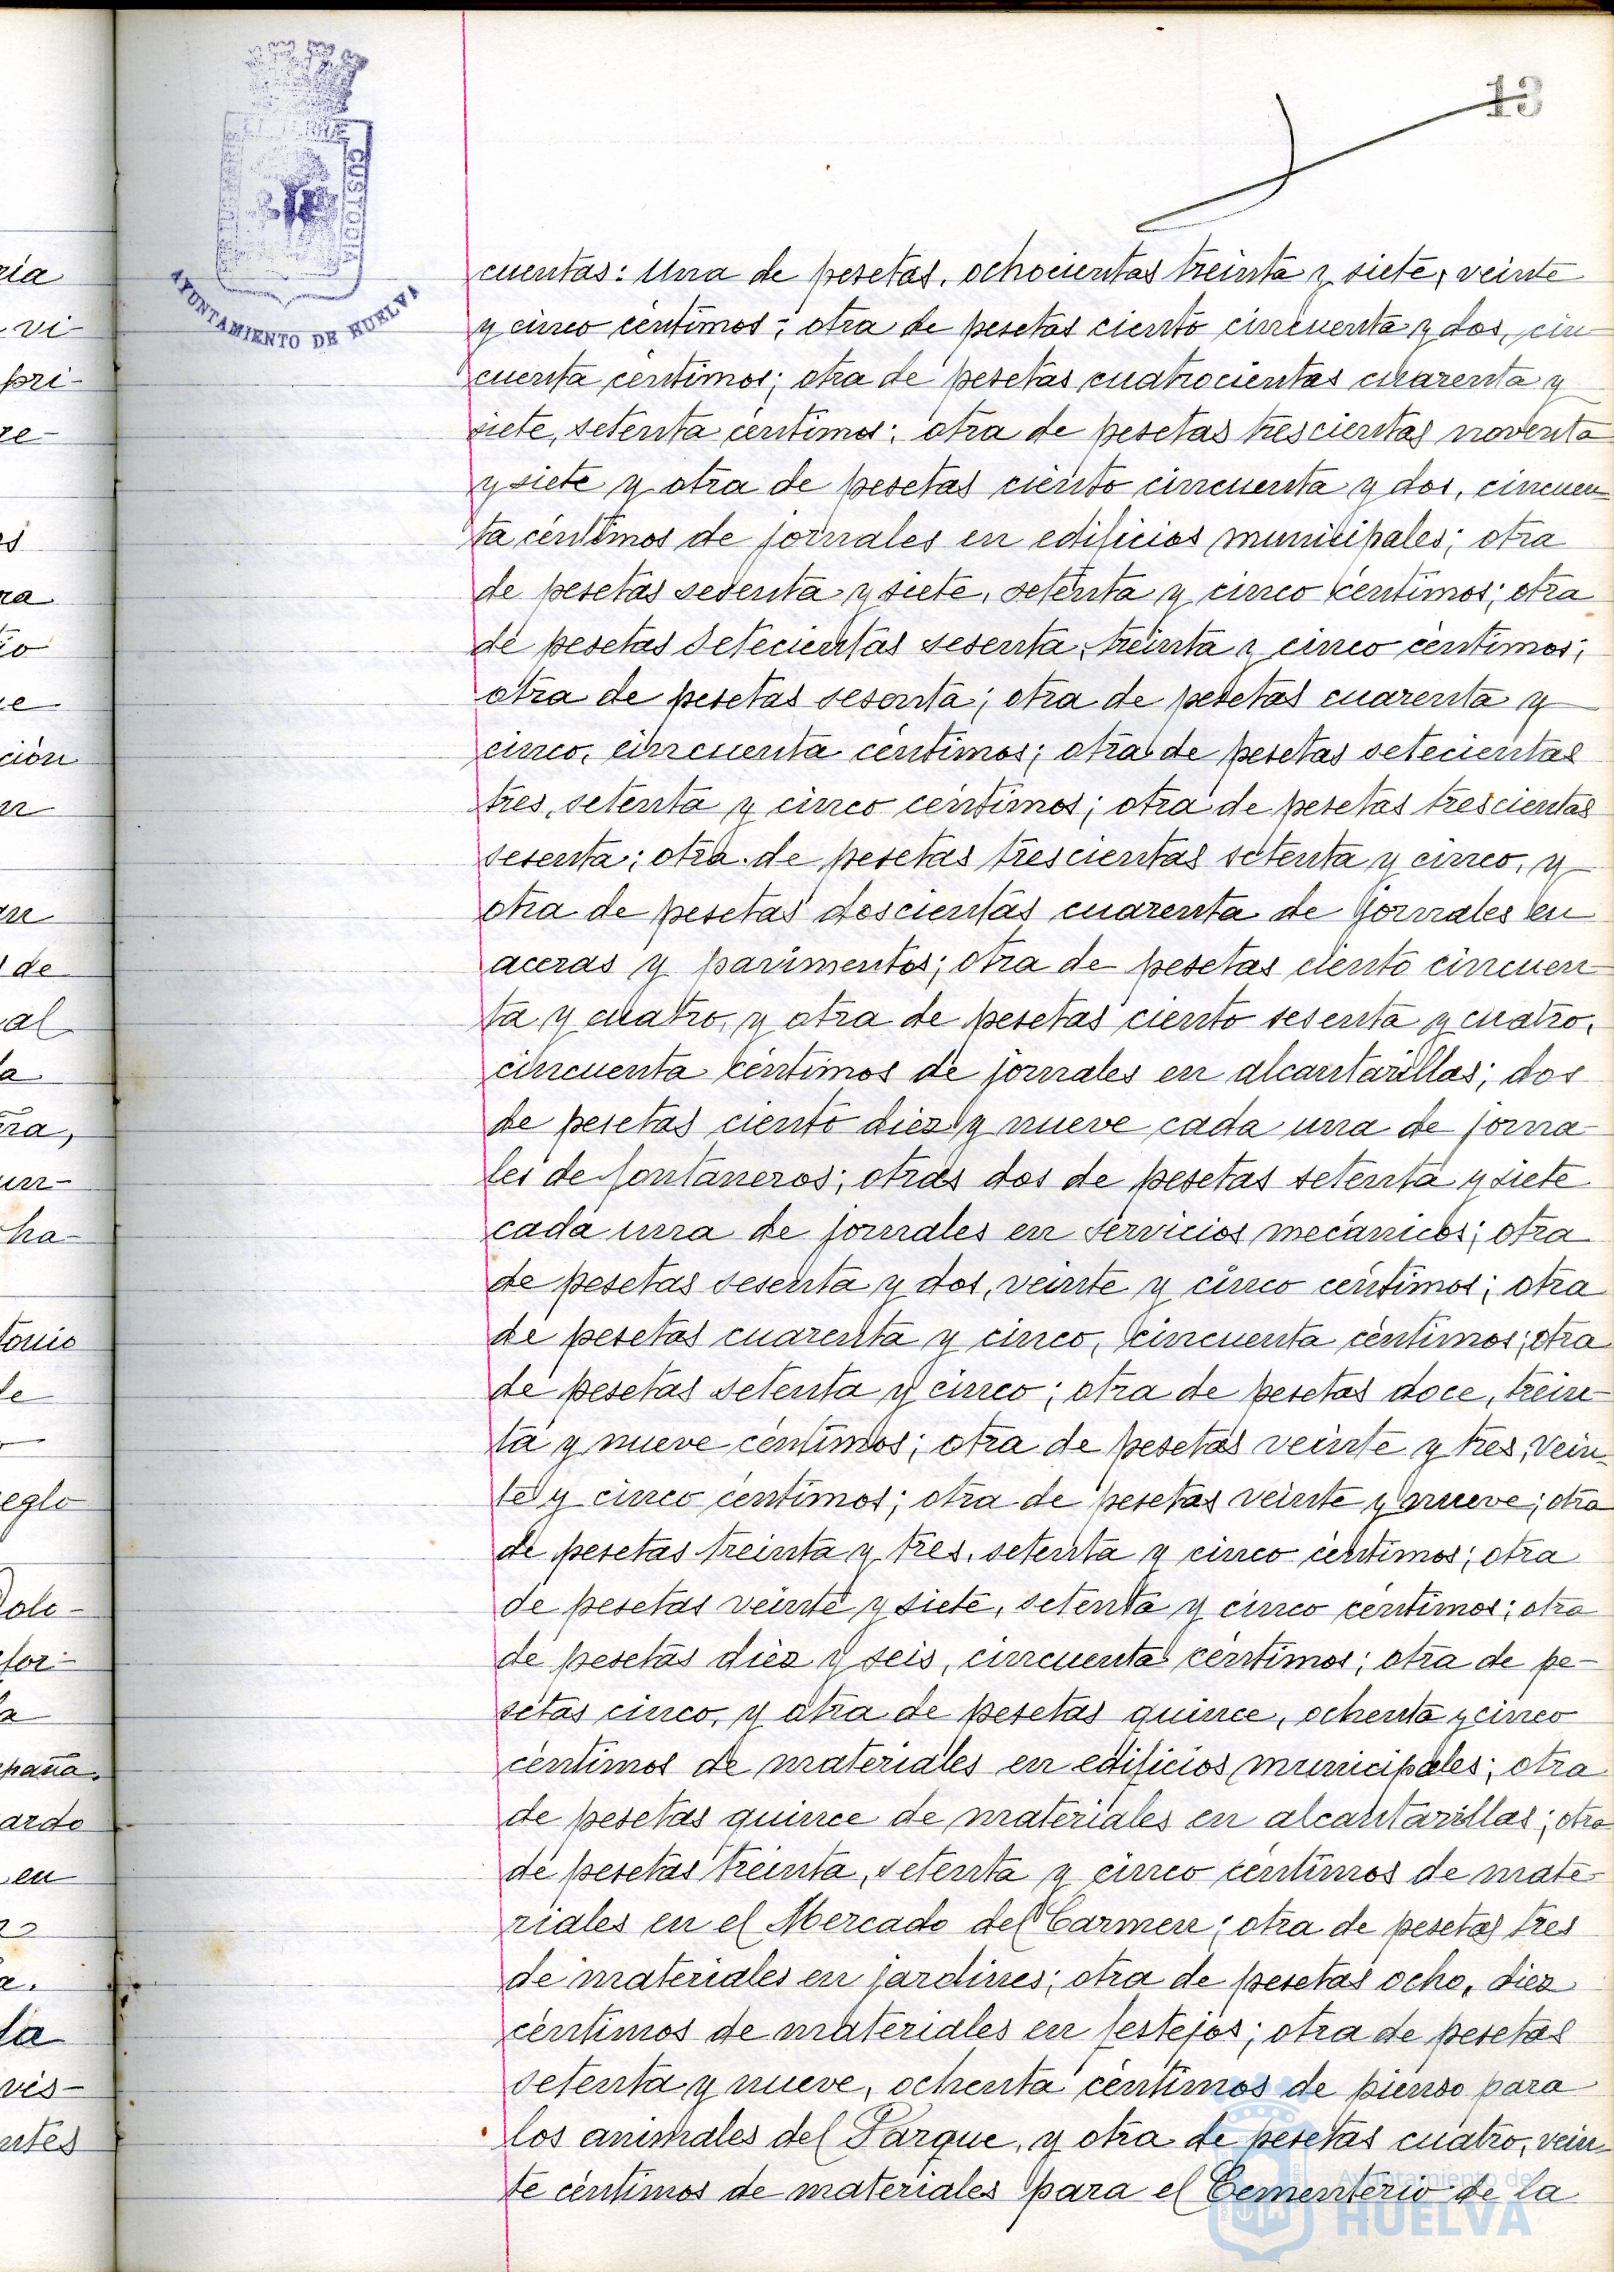 13
PORTUS MARIS ET TERRAE CUSTODIA
AYUNTAMIENTO DE HUELVA
cuentas: Una de pesetas, ochocientas treinta y siete, veinte
y cinco céntimos; otra de pesetas ciento cincuenta y dos, cin
cuenta céntimos; otra de pesetas cuatrocientas cuarenta y
siete, setenta céntimos; otra de pesetas trescientas noventa
y siete y otra de pesetas ciento cincuenta y dos, cincuen
ta céntimos de jornales en edificios municipales; otra
de pesetas sesenta y siete, setenta y cinco céntimos; otra
de pesetas setecientas sesenta, treinta y cinco céntimos;
otra de pesetas sesenta; otra de pesetas cuarenta y
cinco, cincuenta céntimos; otra de pesetas setecientas
tres, setenta y cinco céntimos; otra de pesetas trescientas
sesenta; otra de pesetas trescientas setenta y cinco, y
otra de pesetas doscientas cuarenta de jornales en
aceras y pavimentos; otra de pesetas ciento cincuen
ta y cuatro, y otra de pesetas ciento sesenta y cuatro,
cincuenta céntimos de jornales en alcantarillas; dos
de pesetas ciento diez y nueve cada una de jorna
les de fontaneros; otras dos de pesetas setenta y siete
cada una de jornales en servicios mecánicos; otra
de pesetas sesenta y dos, veinte y cinco céntimos; otra
de pesetas cuarenta y cinco, cincuenta céntimos; otra
de pesetas setenta y cinco; otra de pesetas doce, trein-
ta y nueve céntimos; otra de pesetas veinte y tres, vein
te y cinco céntimos; otra de pesetas veinte y nueve; otra
de pesetas treinta y tres, setenta y cinco céntimos; otra
de pesetas veinte y siete, setenta y cinco céntimos; otra
de pesetas diez y seis, cincuenta céntimos; otra de pe-
setas cinco, y otra de pesetas quince, ochenta y cinco
céntimos de materiales en edificios municipales; otra
de pesetas quince de materiales en alcantarillas; otra
de pesetas treinta, setenta y cinco céntimos de mate
riales en el Mercado del Carmen; otra de pesetas tres
de materiales en jardines; otra de pesetas ocho, diez
céntimos de materiales en festejos; otra de pesetas
setenta y nueve, ochenta céntimos de pienso para
los animales del Parque, y otra de pesetas cuatro, vein
te céntimos de materiales para el Cementerio de la
Ayuntamiento de
HUELVA
ria
vi-
pri-
re-
ra
ción
an
de
al
ha-
tonio
eglo
for-
paña.
ardo
en
la
vis-
ntes